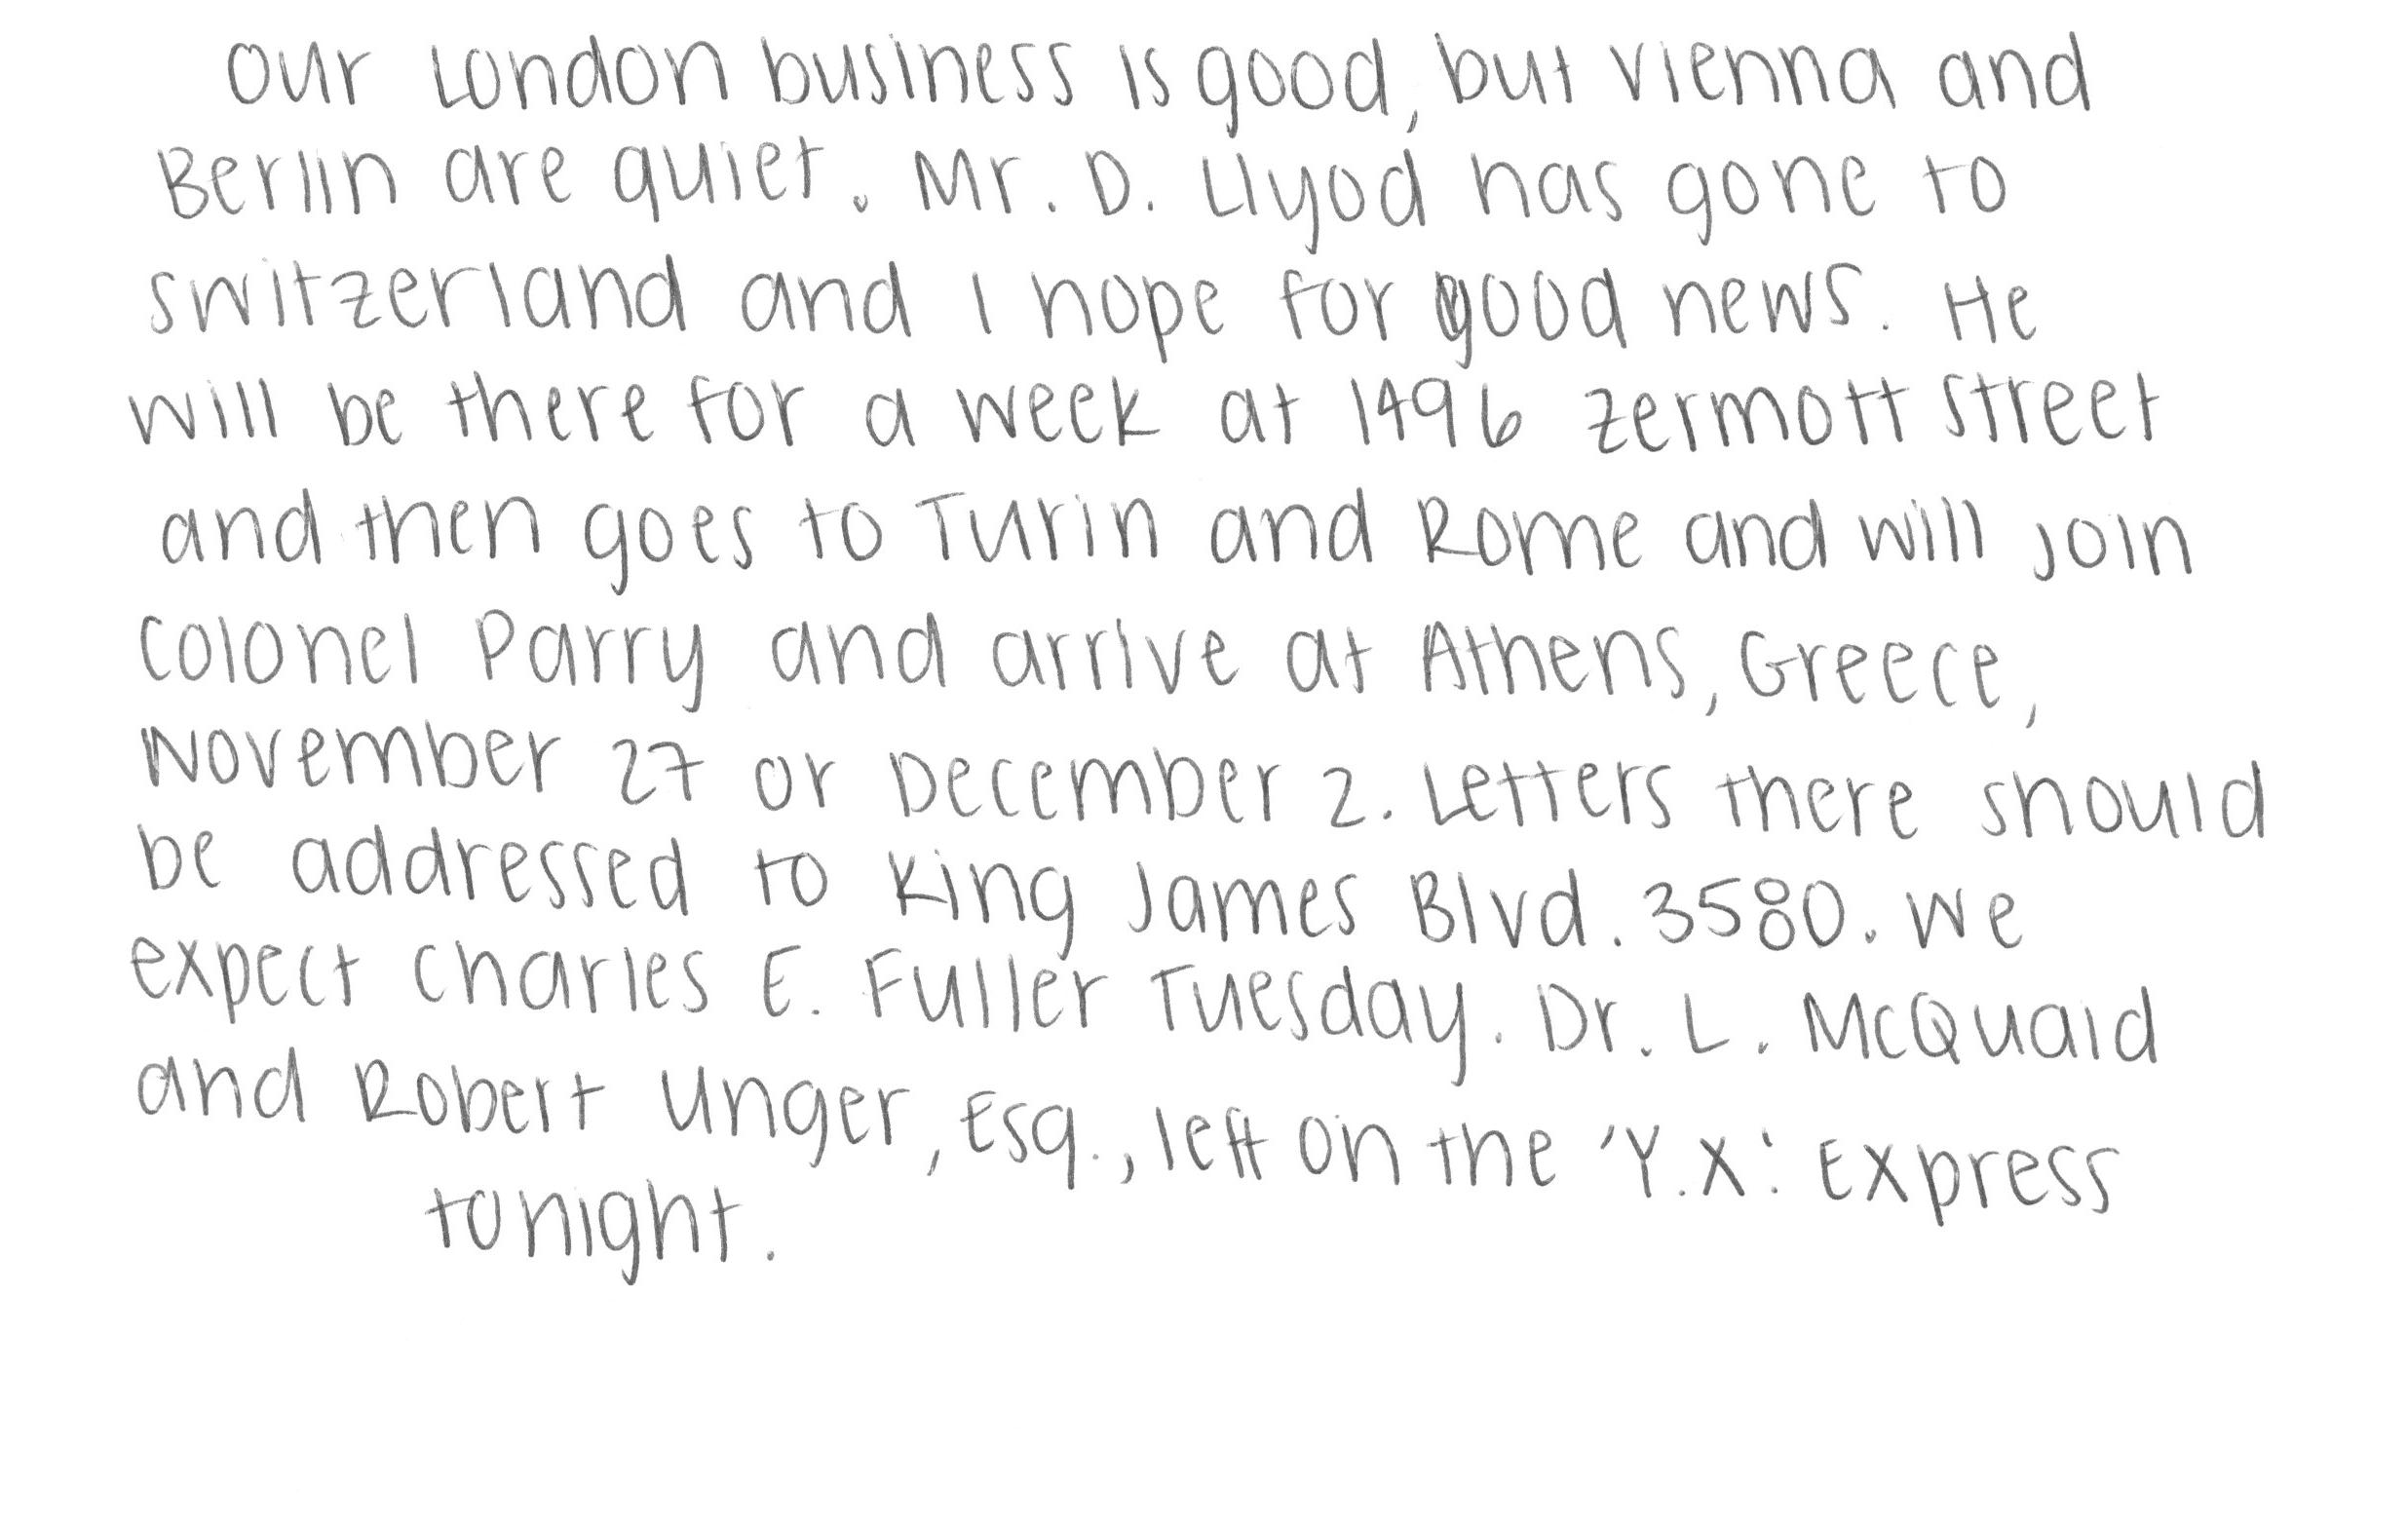 Our London business is good, but Vienna and
Berlin are quiet. Mr. D. Llyod has gone to
Switzerland and I hope for good news. He
will be there for a week at 1496 Zermott Street
and then goes to Turin and Rome and will join
Colonel Parry and arrive at Athens, Greece,
November 27 or December 2. Letters there should
be addressed to King James Blvd. 3580. We
expect Charles E. Fuller Tuesday. Dr. L. McQuaid
and Robert Unger, Esq., left on the 'Y.X.' Express
tonight.